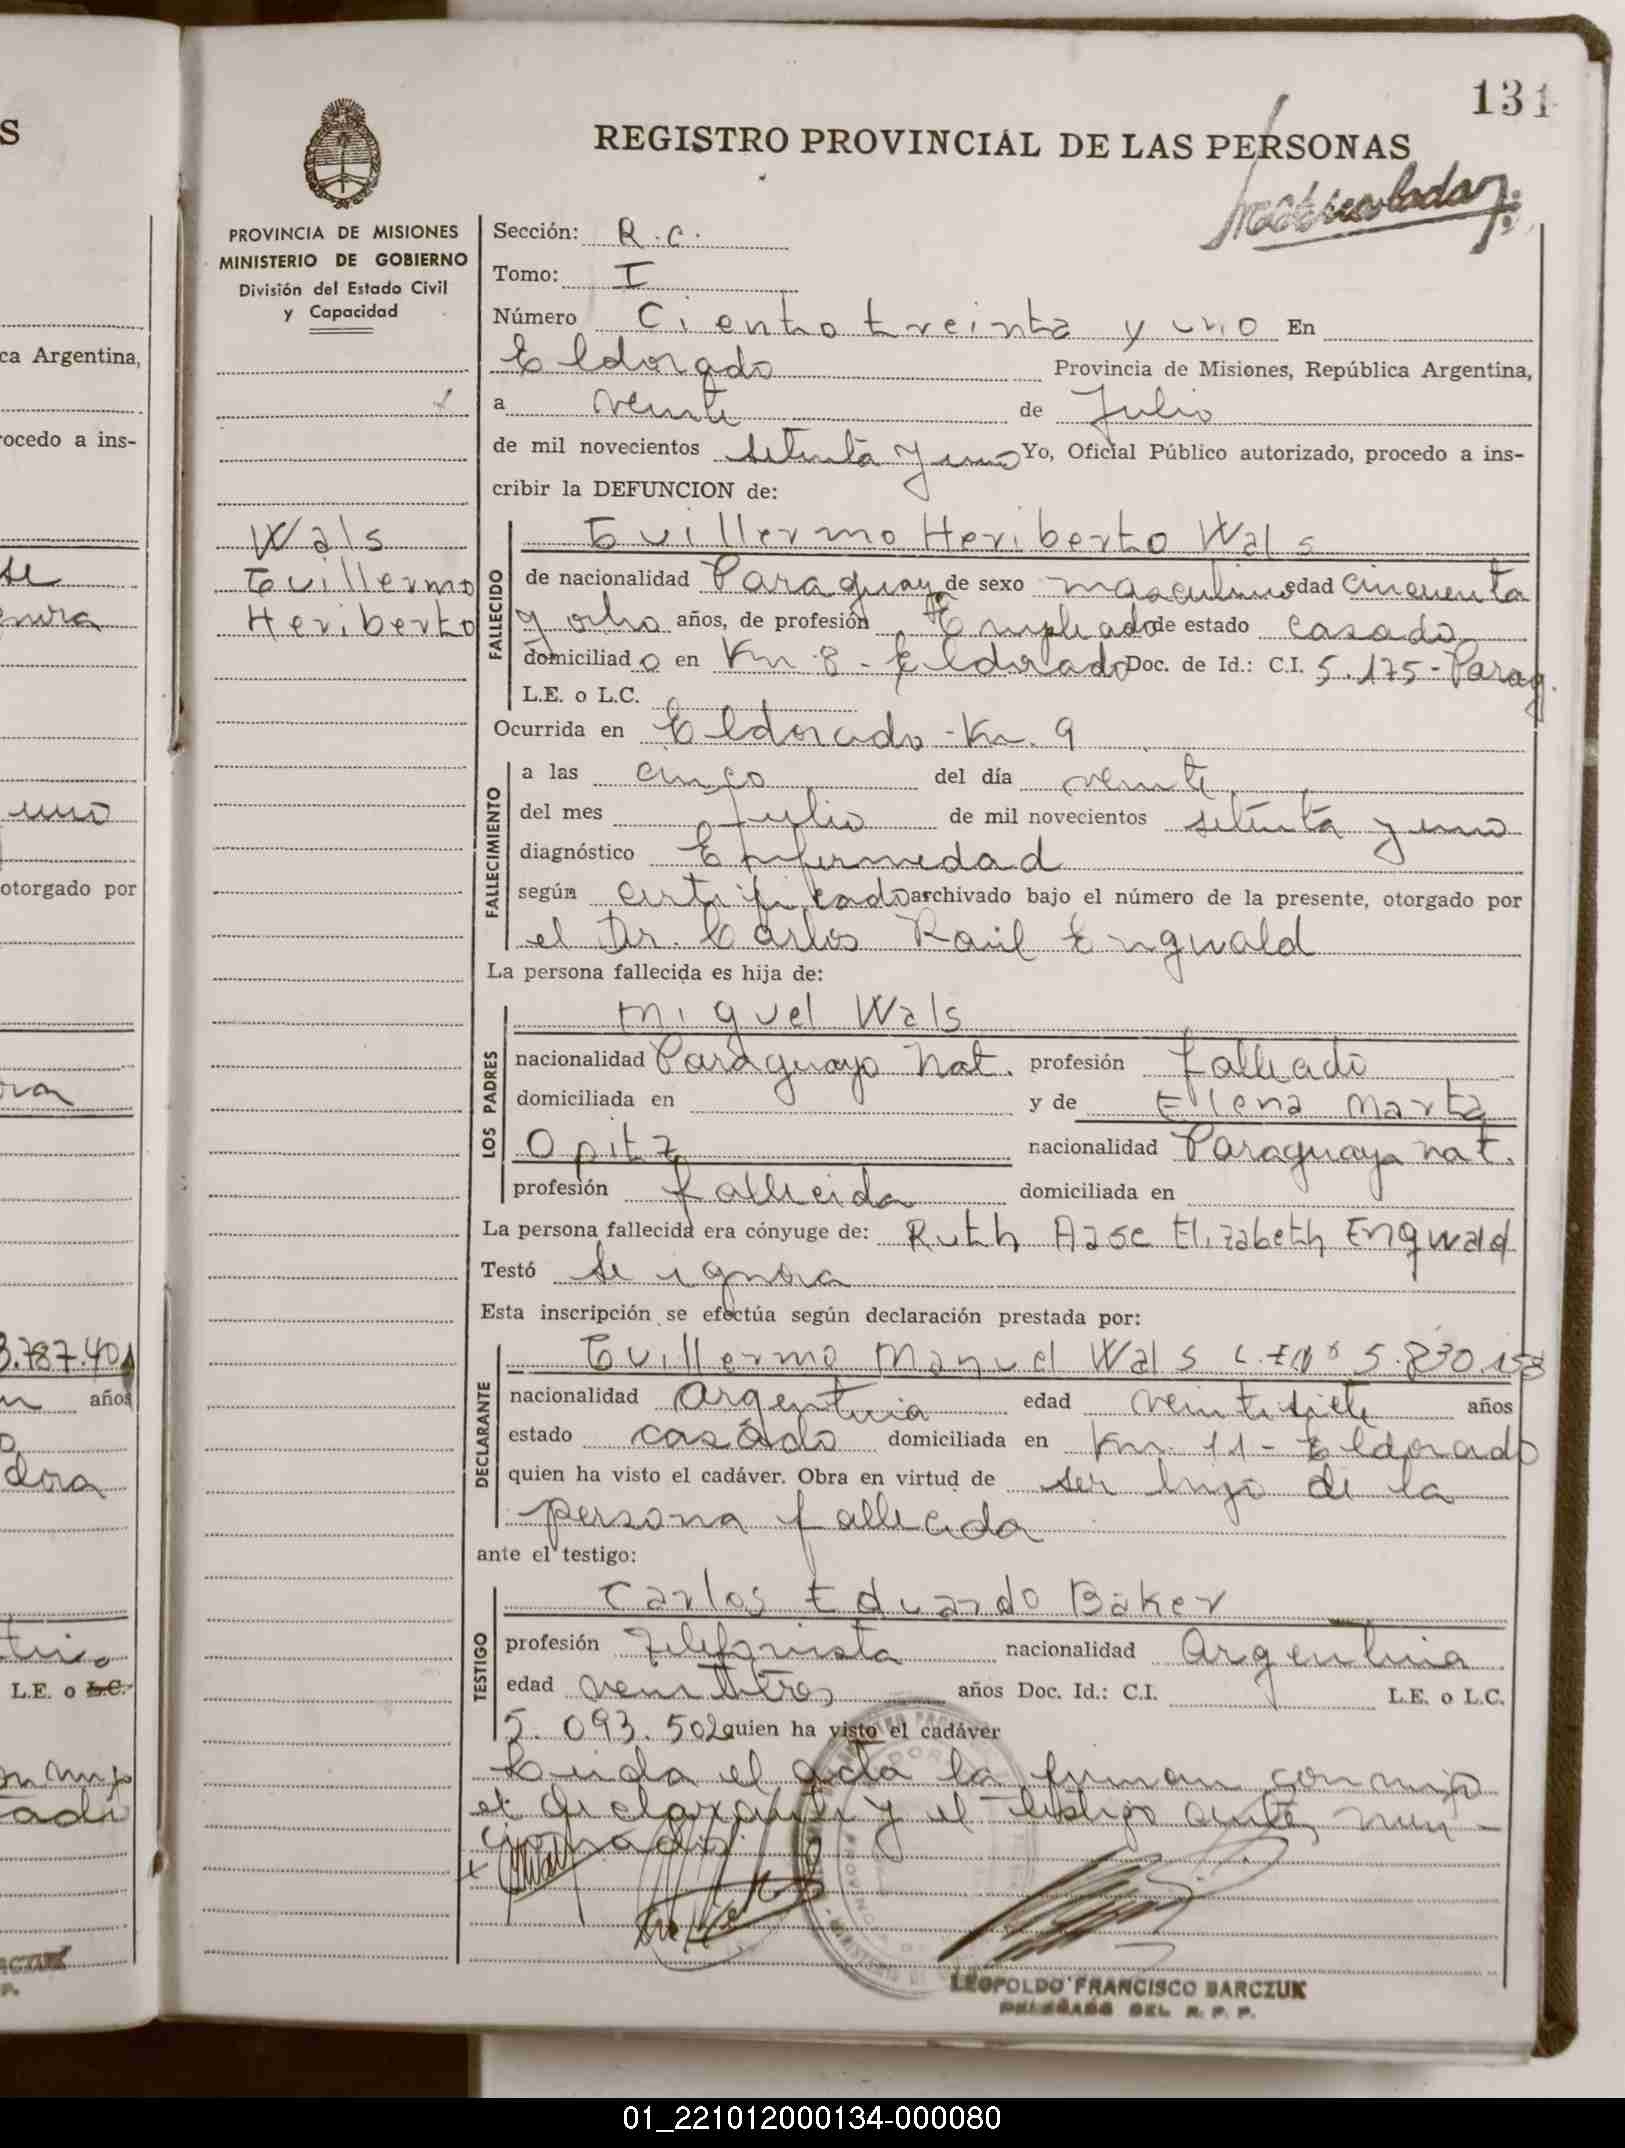 131
REGISTRO PROVINCIAL DE LAS PERSONAS
Matriculado
PROVINCIA DE MISIONES
MINISTERIO DE GOBIERNO
División del Estado Civil
y Capacidad
Wals
Guillermo
Heriberto
Sección: R.C.
Tomo: I
Número Ciento treinta y uno En
Eldorado Provincia de Misiones, República Argentina,
a veinte de Julio
de mil novecientos setenta y uno Yo, Oficial Público autorizado, procedo a ins-
cribir la DEFUNCION de:
FALLECIDO
Guillermo Heriberto Wals
de nacionalidad Paraguaya de sexo masculino edad cincuenta
y ocho años, de profesión Empleado de estado casado
domiciliado en Km 8 - Eldorado Doc. de Id.: C.I. 5.175-Parag.
L.E. o L.C.
Ocurrida en Eldorado - Km. 9
FALLECIMIENTO
a las cinco del día veinte
del mes Julio de mil novecientos setenta y uno
diagnóstico Enfermedad
según certificado archivado bajo el número de la presente, otorgado por
el Dr. Carlos Raúl Engwald
La persona fallecida es hija de:
LOS PADRES
Miguel Wals
nacionalidad Paraguayo Nat. profesión fallecido
domiciliada en y de Elena Marta
Opitz nacionalidad Paraguaya nat.
profesión fallecida domiciliada en
La persona fallecida era cónyuge de: Ruth Aase Elizabeth Engwald
Testó se ignora
Esta inscripción se efectúa según declaración prestada por:
DECLARANTE
Guillermo Manuel Wals L.E Nº 5.830.158
nacionalidad Argentina edad veintisiete años
estado casado domiciliada en Km. 11 - Eldorado
quien ha visto el cadáver. Obra en virtud de ser hijo de la
persona fallecida
ante el testigo:
TESTIGO
Carlos Eduardo Baker
profesión Telefonista nacionalidad Argentina
edad veintitres años Doc. Id.: C.I. L.E. o L.C.
5.093.502 quien ha visto el cadáver
Leida el acta la firman conmigo
el declarante y el testigo ante men-
cionado.
LEOPOLDO FRANCISCO BARCZUK
DELEGADO DEL R. P. P.
S
ca Argentina,
rocedo a ins-
uno
otorgado por
3.787.401
años
L.E. o L.C.
01_221012000134-000080